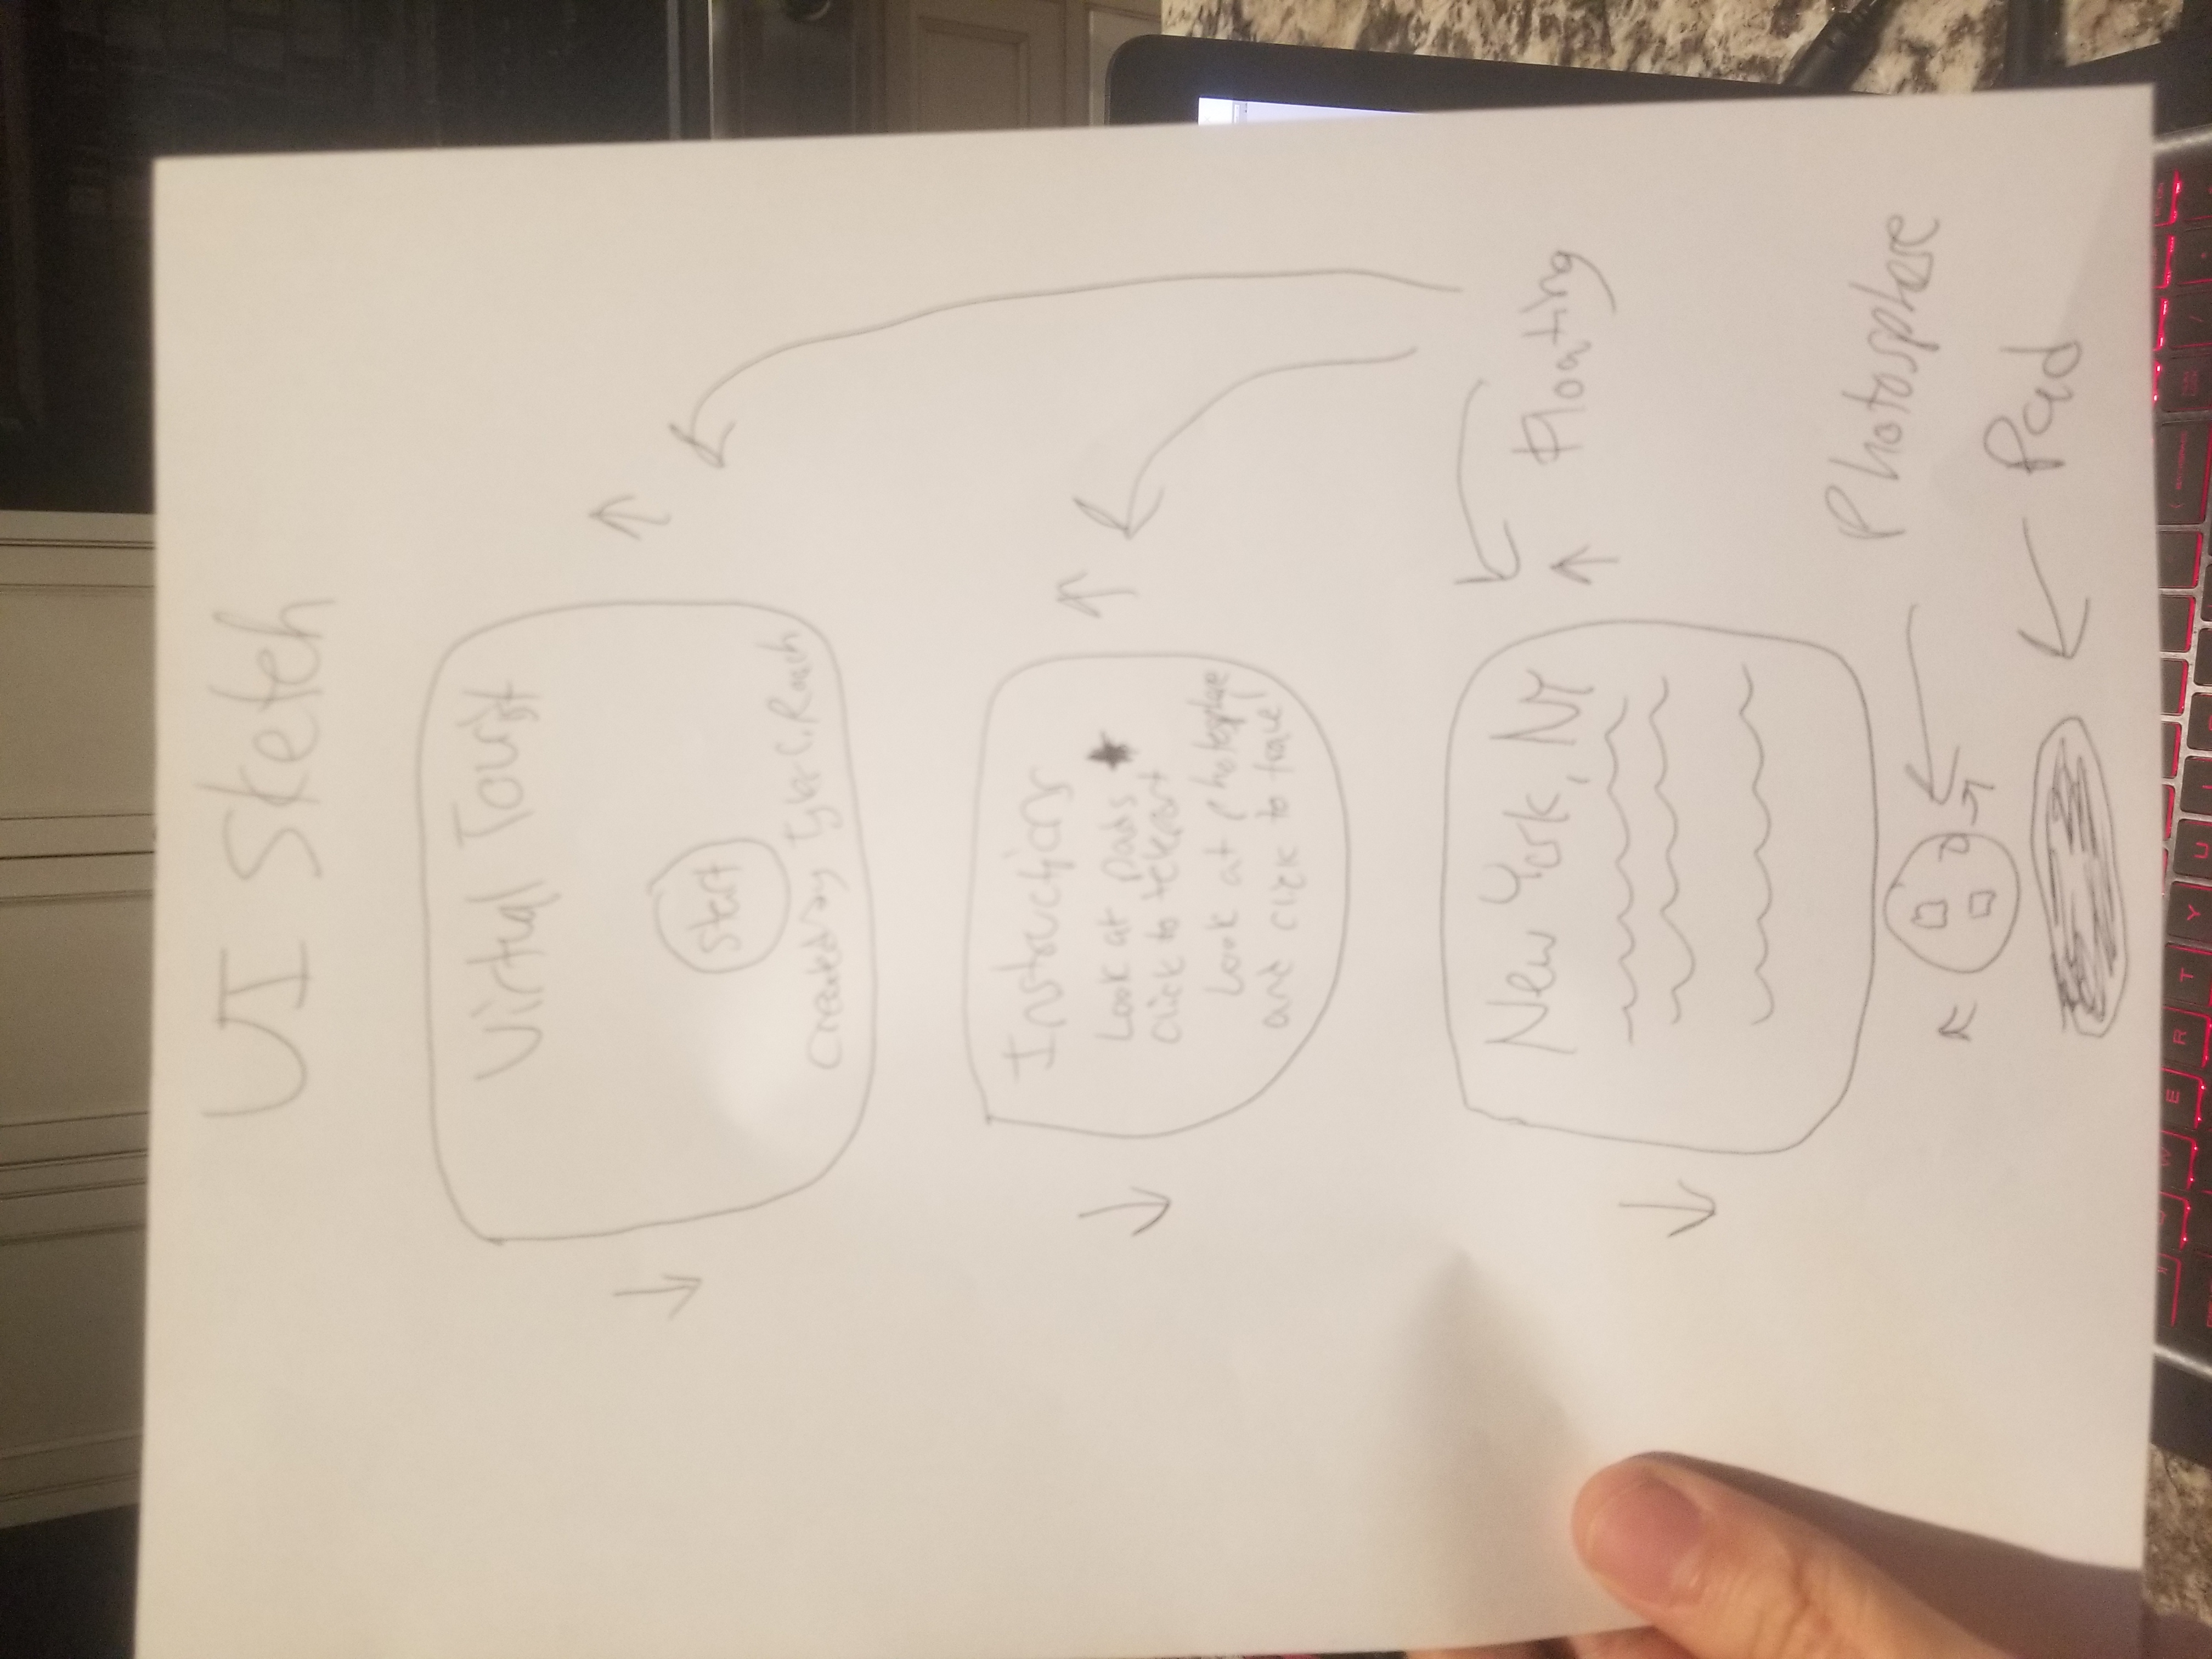 UI Sketch
Virtual Tourist
Start
Created by Tyler C. Roach
Instructions
Look at pads
click to teleport
Look at photosphere
and click to travel
New York, NY
Floating
Photosphere
Pad
W E R T Y U